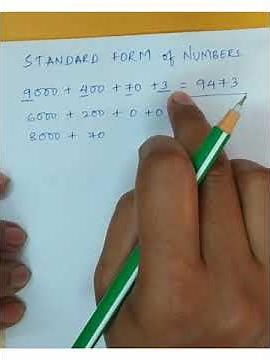 STANDARD FORM of NUMBERS
9000 + 400 + 70 + 3 = 9473
6000 + 200 + 0 + 0
8000 + 70